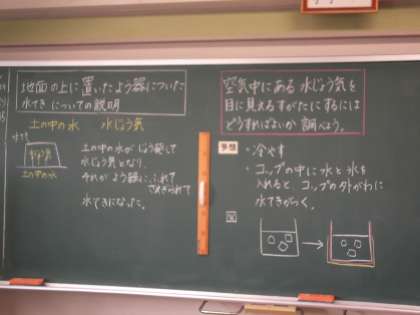 地面の上に置いたよう器についた
水てきについての説明
土の中の水　水じょう気
水てき
土の中の水
土の中の水がじょう発して
水じょう気となり、
それがよう器にふれて
水てきになった。
空気中にある水じょう気を
目に見えるすがたにするには
どうすればよいか調べよう。
予想
・冷やす
・コップの中に水と氷を
入れると コップの外がわに
水てきがつく。
図